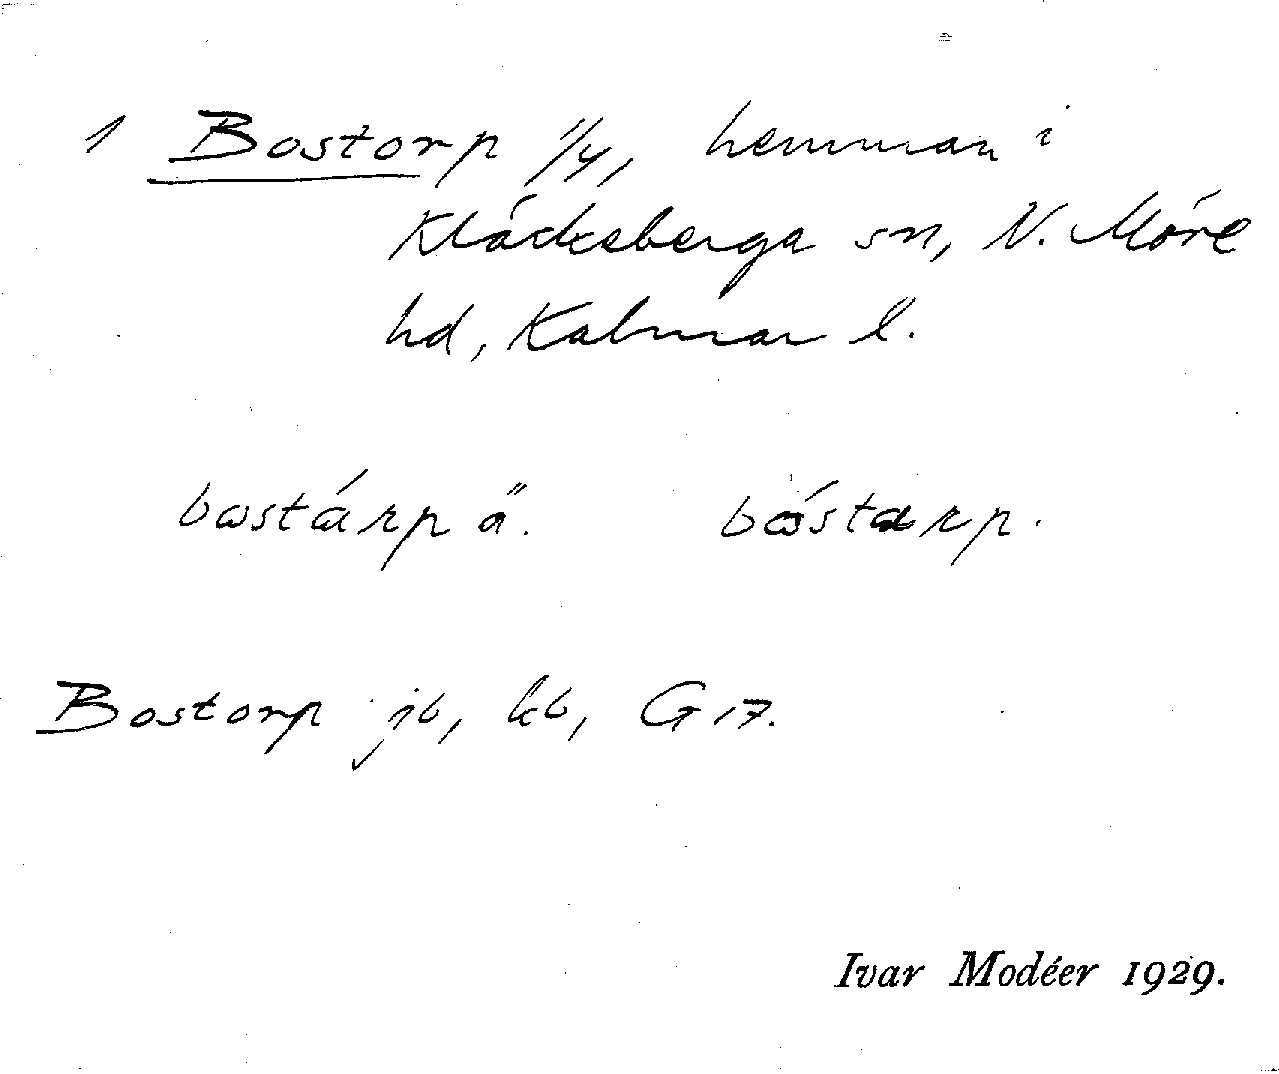 1 Bostorp 1/4, hemman i
Kläckeberga sn, N. Möre
hd, Kalmar l.
bωstárp ä. bώstarp.
Bostorp jb, kb, G 17.
Ivar Modéer 1929.